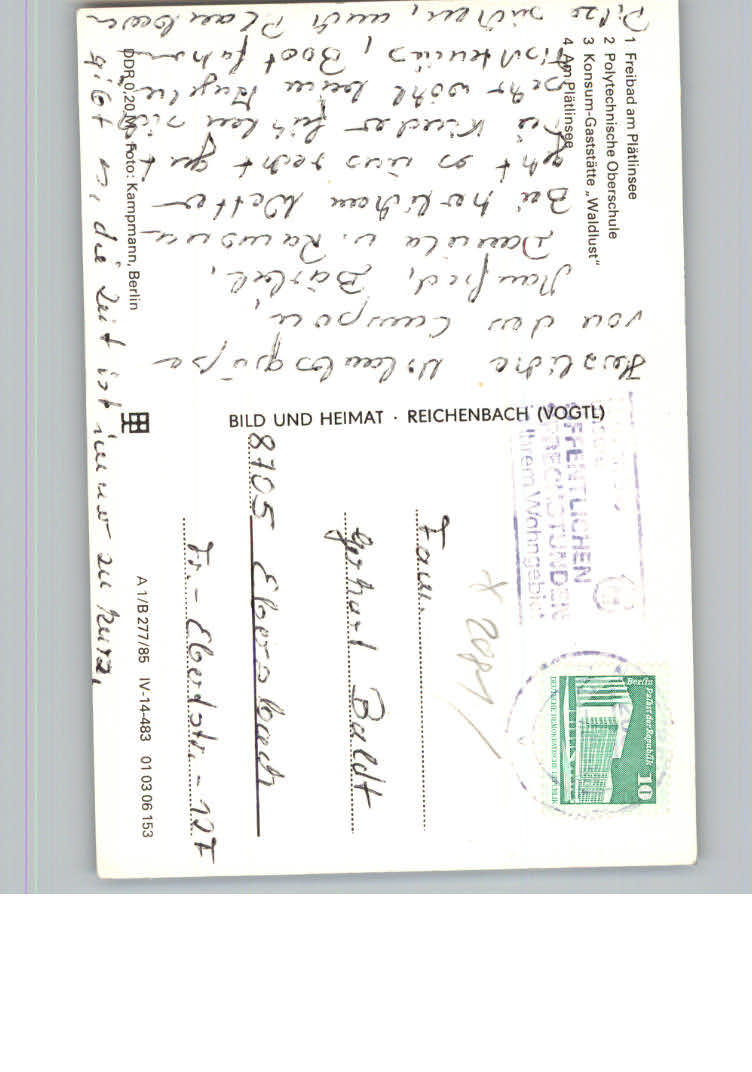 1 Freibad am Plätlinsee
2 Polytechnische Oberschule
3 Konsum-Gaststätte „Waldlust"
4 Am Plätlinsee
Herzliche Urlaubsgrüße
von den
Manfred, Bärbel,
Daniela u.
Bei herlichem Wetter
geht es uns recht gut
Die Kinder fühlen sich
sehr wohl beim
Tischtennis, Boot fahren
Pilze suchen, auch Blaubeeren
gibt es, die Zeit ist immer zu kurz,
DDR 0,20 M Foto: Kampmann, Berlin
BILD UND HEIMAT · REICHENBACH (VOGTL)
A 1/B 277/85 IV-14-483 01 03 06 153
ÖFFENTLICHEN
SPRECHSTUNDEN
Ihrem Wohngebiet
Berlin
Palast der Republik
10
DEUTSCHE DEMOKRATISCHE REPUBLIK
Fam.
Gerhard Boldt
8705 Ebersbach
Fr.-Ebertstr.-127